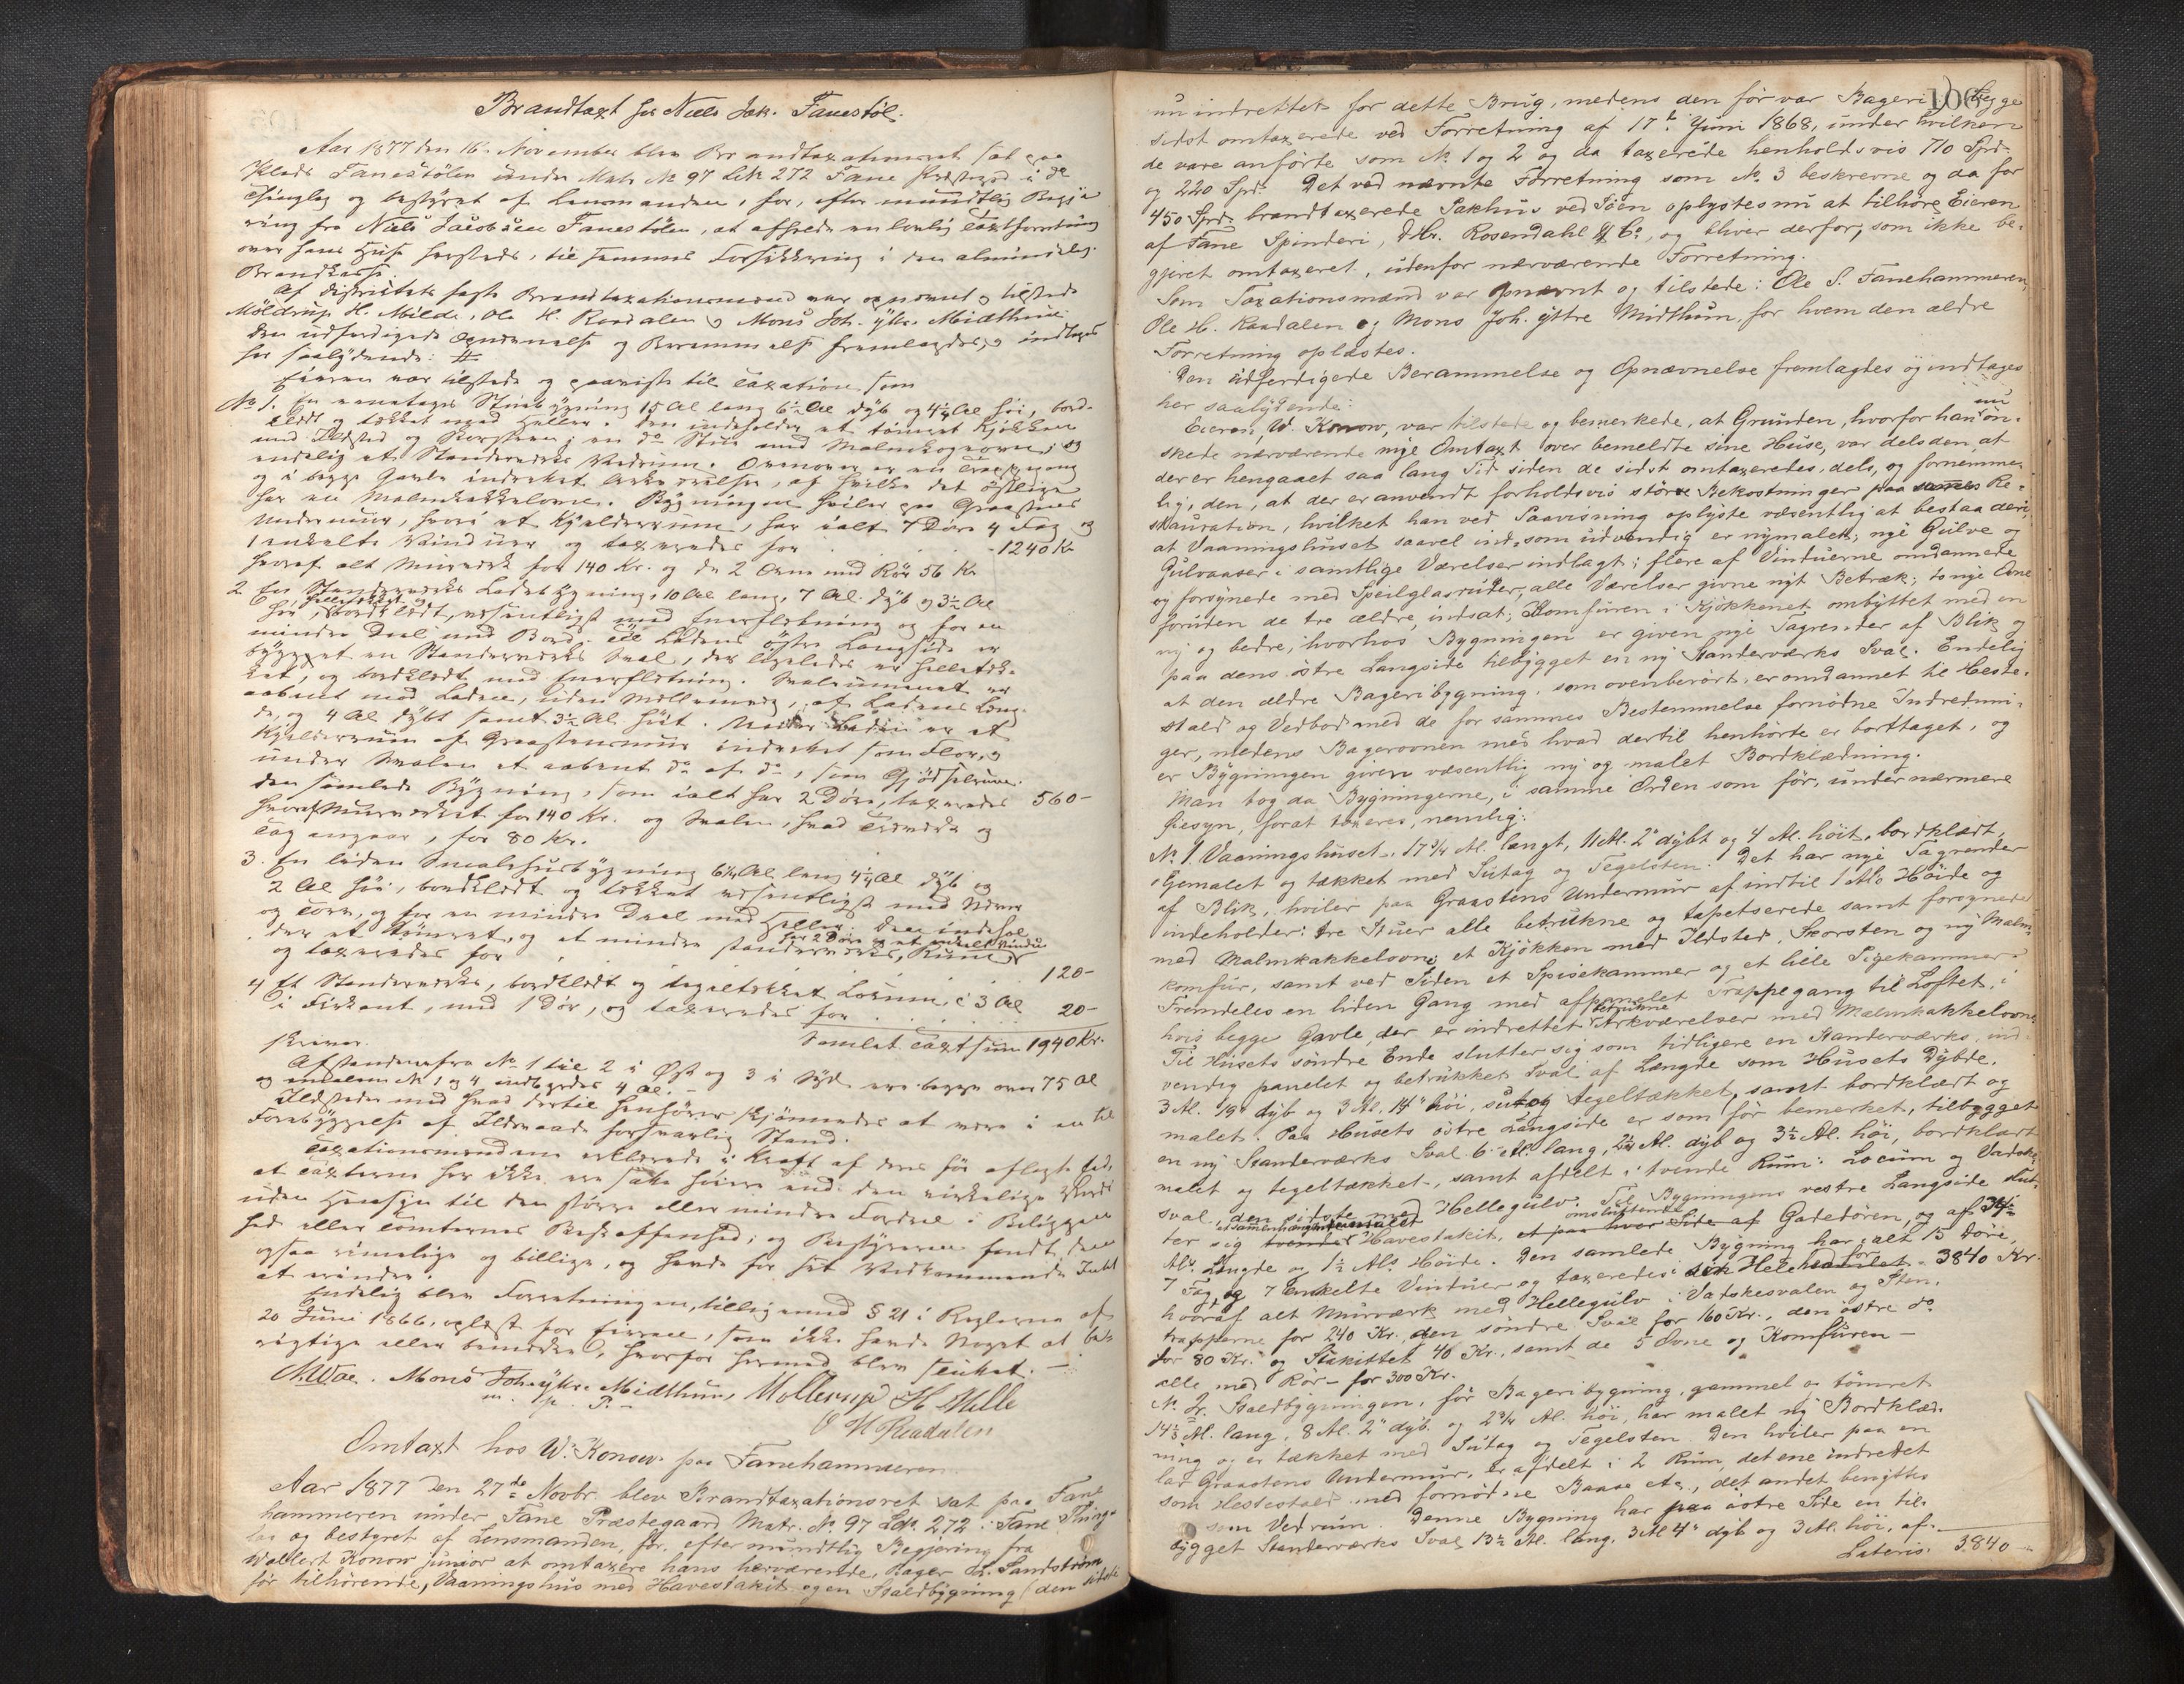 Brandtaxt hos Niels Jak. Fanestöl.
Aar 1877 den 16. November blev Brandtaxationsret sat paa
Pladsen Fanestölen under Matr. No 97 Lnr 272 Fane Præstegd i
Thinglag og bestyret af Lensmanden, for, efter mundtlig Begjæ-
ring fra Niels Jacobsen Fanestölen, at afholde en lovlig Taxtforretning
over hans Huse sammesteds, til sammes Forsikkring i den almindelige
Brandkasse.
Af Distriktets faste Brandtaxationsmænd var opnævnt og tilstede
Möldrup H. Milde, Ole H. Raadalen og Mons Joh. yttre Midthun.
Den udfærdigede Opnævnelse og Berammelse fremlagdes, og indtages
her saalydende: #
Eieren var tilstede og paaviste til Taxation som
No 1. En eenetages Stuebygning 15 Al lang 6½ Al dyb og 4¼ Al höi, bord-
klædt og tækket med Heller. Den indeholder et tömret Kjökken
med Ildsted og Skorsteen; en do Stue med Malmkogeovn, og
endelig et Standerværks Vedrum. Ovenover er en Trappegang
og i begge Gavle indredet Arkeværelser, af hvilke det östlige
har en Malmkakkelovn. Bygningen hviler paa Graasteens
Undermuur, hvori et Kjælderrum, har ialt 7 Döre 4 Fag og
1 enkelte Vinduer og taxeredes for . . . . - 1240 Kr
hvoraf alt Muurværk for 140 Kr. og de 2 Ovne med Rör 56 Kr
2 En Standerværks Ladebygning, 10 Al. lang, 7 Al. dyb og 3½ Al
höi, helletækket og bordklædt, væsentligst med Sværflætning og for en
mindre Deel med Bord. Til Ladens östre Langside er
bygget en Standerværks Sval, der ligeledes er helletæk-
ket, og bordklædt med Sværflætning. Svalrummet er
aabent mod Laden, uden Mellemvæg, af Ladens Læng-
de, og 4 Al dybt samt 3½ Al. höit. Under Laden er et
Kjælderrum af Graasteensmuur indredet som Flor, og
under Svalen et aabent do af do, som Gjödselrum.
Den samlede Bygning, som ialt har 2 Döre, taxeredes 560 -
hvoraf Muurværket for 140 Kr. og Svalen, hvad Træværk og
Tag angaar, for 80 Kr.
3. En liden Smalehusbygning 6¼ Al lang 4¼ Al dyb og
2 Al höi, bordklædt og tækket væsentligst med Næver
og Torv, og for en mindre Deel med Heller. Den indehol-
der et tömret, og et mindre standerværks, Rum
har 2 Döre og et enkelt Vindu
og taxeredes for . . . . 120 -
4 Et Standerværks, bordklædt og tegeltækket Locum, c 3 Al
i Firkant, med 1 Dör, og taxeredes for . . . . 20 -
skriver. Samlet Taxtsum 1940 Kr.
Afstanden fra No 1 til 2 i Öst og 3 i Syd er begge over 75 Al
og imellem No 1 og 4 indbyrdes 4 Al. -
Ildstedet med hvad dertil henhörer skjönnedes at være i en til
Forebyggelse af Ildsvaade forsvarlig Stand.
Taxationsmændene erklærede i Kraft af deres för aflagte Ed,
at Taxterne her ikke ere satte höiere end den virkelige Værdi
uden Hensyn til den större eller mindre Fordeel i Beliggen-
hed eller Tomternes Beskaffenhed; og Bestyreren fandt dem
ogsaa rimelige og billige, og havde for sit Vedkommende Intet
at erindre.
Endelig blev Forretningen, tilligemed § 21 i Reglerne af
20 Juni 1866, oplæst for Eieren, som ikke havde Noget at be-
rigtige eller bemærke, hvorfor hermed blev sluttet. -
N. Wae. Mons Joh. yttre Midthun, Mollerup H. Milde
m. p. P. -
O H Raadalen
Omtaxt hos W. Konow. paa Fanehammeren.
Aar 1877 den 27de Novbr. blev Brandtaxationsret sat paa Fane
hammeren under Fane Præstegaard Matr. No. 97 Ldr. 272 i Fane Thing-
lag og bestyret af Lensmanden, for, efter mundtlig Begjering fra
Wallert Konow junior at omtaxere hans herværende, Bager Lr. Sandström
för tilhörende, Vaaningshus med Havestakit og en Staldbygning (den sidste
100
nu indrettet for dette Brug, medens den för var Bageri) begge
sidst omtaxerede ved Forretning af 17de Juni 1868, under hvilken
de vare anförte som No. 1 og 2 og da taxerede henholdsvis 710 Spd.
og 220 Spd. Det ved nævnte Forretning som No. 3 beskrevne og da for
450 Spd. brandtaxerede Sakhus ved Söen oplystes nu at tilhöre Eieren
af Fane Spinderi, DHr. Rosendahl & Co, og bliver derfor, som ikke be-
gjæret omtaxeret, udenfor nærværende Forretning.
Som Taxationsmænd var opnævnt og tilstede: Ole S. Fanehammeren,
Ole H. Raadalen og Mons Joh. yttre Midthun, for hvem den ældre
Forretning oplæstes.
Den udferdigede Berammelse og Opnævnelse fremlagdes og indtages
her saalydende:
Eieren, W. Konow, var tilstede og bemerkede, at Grunden, hvorfor han nu ön-
skede nærværende nye Omtaxt over bemeldte sine Huse, var dels den, at
der er hengaaet saa lang Tid siden de sidst omtaxeredes, dels, og fornemme-
lig, den, at der er anvendt forholdsvis störe Bekostninger paa Re-
stauration, hvilket han ved Paavisning oplyste væsentlig at bestaa deri,
at Vaaningshuset saavel ind- som udvendig er nymalet; nye Gulve og
Gulvaaser i samtlige Værelser indlagt; flere af Vinduerne omdannede
og forsynede med Speilglasruder, alle Værelser givne nyt Betræk; to nye Ovne
foruden de tre ældre, indsat; Komfuren i Kjökkenet ombyttet med en
ny og bedre, hvorhos Bygningen er given nye Tagrender af Blik, og
paa dens östre Langside tilbygget en ny Standerværks Sval. Endelig
at den ældre Bageribygning, som ovenberört, er omdannet til Heste-
stald og Vedbod med de for sammes Bestemmelse fornödne Indretnin-
ger, medens Bagerovnen med hvad dertil henhörte er borttaget, og
er Bygningen given væsentlig ny og malet Bordklædning.
Man tog da Bygningerne, i samme Orden som för, under nærmere
Besyn, forat taxeres, nemlig:
No. 1. Vaaningshuset. 17¾ Al. langt, 11 Al. 2" dybt og 4 Al. höit. bordklædt,
oljemalet og tækket med Sutag og Tegelsten. Det har nye Tagrender
af Blik, hviler paa Graastens Undermur af indtil 1 Als Höide og
indeholder: tre Stuer alle betrukne og tapetserede samt forsynede
med Malmkakkelovne, et Kjökken med Ildsted, Skorsten og ny Malm-
komfur, samt ved Siden et Spisekammer og et lille Pigekammer.
Fremdeles en liden Gang med afpanelet Trappegang til Loftet, i
hvis begge Gavle, der er indrettet betrukne Arkværelser med Malmkakkelovne.
Til Husets söndre Ende slutter sig som tidligere en Standerværks, ind-
vendig panelet og betrukket Sval af Længde som Husets Dybde.
3 Al. 19" dyb og 3 Al. 14" höi, sutag tegeltækket, samt bordklædt og
malet. Paa Husets östre Langside er som för bemerket, tilbygget
en ny Standerværks Sval 6 Al lang, 2½ Al. dyb og 3½ Al. höi, bordklædt
malet og tegeltækket, samt afdelt i tvende Rum: Locum og Vadske-
sval, den sidste med Hellegulv. Til Bygningens vestre Langside slut-
ter sig Havestakit, omsluttende Gadedören, og af 34½
Als. Længde og 1½ Als Höide. Den samlede Bygning har i alt 15 Döre,
7 Fag og 7 Enkelte Vinduer og taxeredes i sin Helhed for - 3840 Kr.
hvoraf alt Murværk med Hellegulv i Vadskesvalen og Sten-
trapperne for 240 Kr., den söndre Sval for 160 Kr., den östre do
for 80 Kr. og Stakittet 40 Kr., samt de 5 Ovne og Komfuren -
alle med Rör - for 300 Kr.
No. 2. Staldbygningen, för Bageribygning, gammel og tömret
14½ Al. lang, 8 Al. 2" dyb. og 2¾ Al. höi, har malet ny Bordklæd-
ning og er tækket med Sutag og Tegelsten. Den hviler paa en
lav Graastens Undermur, er afdelt i 2 Rum, det ene indredet
som Hestestald med fornödne Baase etc., det andet benyttes
som Vedrum. Denne Bygning har paa östre Side en til-
bygget Standerværks Sval 13½ Al. lang, 3 Al 4" dyb og 3 Al. höi, af-
Lateris. 3840 -